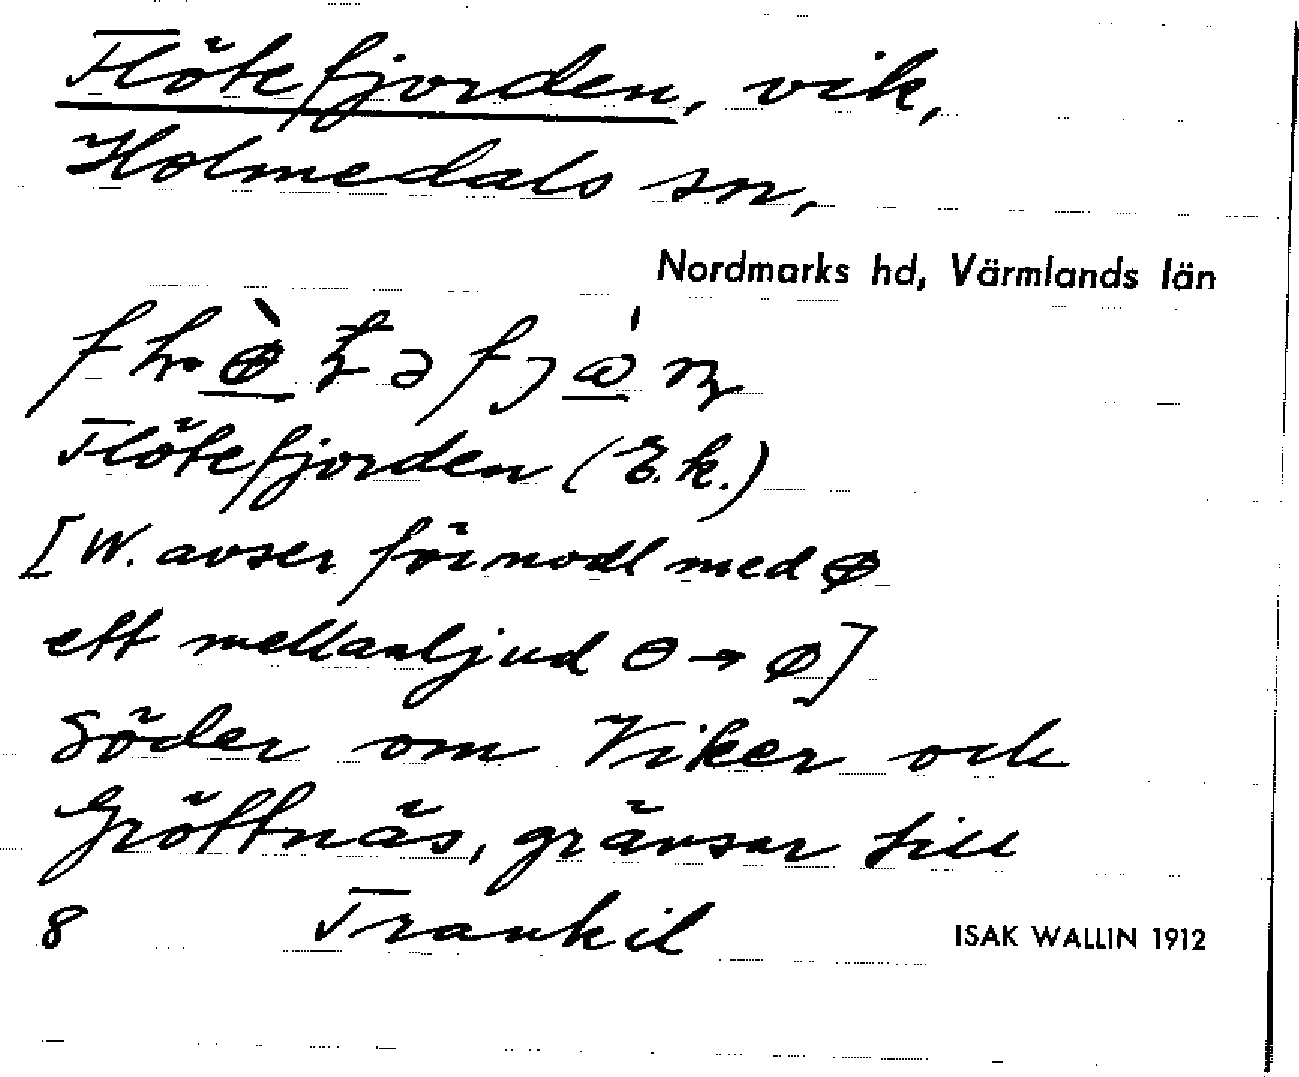 Flötefjorden, vik,
Holmedals sn,
Nordmarks hd, Värmlands län
Flötefjorden (E.k.)
[W. avser förmodl med ꝋ
ett mellanljud ɵ → ø]
Söder om Viker och
Gröttnäs, gränsar till
8 Trankil
ISAK WALLIN 1912